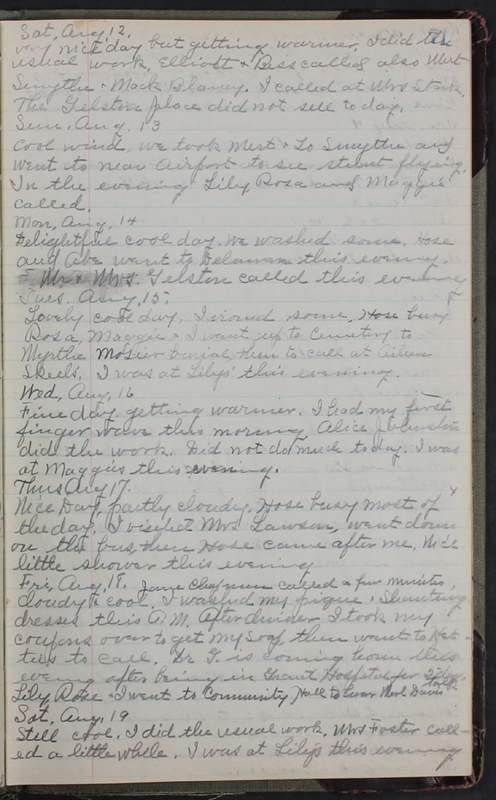 Sat, Aug, 12.
very nice day but getting warmer, I did the
usual work, Elliott + Bess called also Mert
Smythe + Mack Blaney. I called at Mrs Stark.
The Gelston place did not sell to day.
Sun. Aug. 13
Cool wind, we took Mert + to Smythe and
went to near Airport to see stunt flying,
In the evening Lily, Rosa and Maggie
called.
Mon, Aug, 14
Delightful cool day. We washed some. Hose
and Abe went to Delaware this evening.
Mr + Mrs. Gelston called this evening
Tues. Aug, 15,
Lovely cool day, I ironed some, Hose busy
Rosa, Maggie + I went up to Cemetery to
Myrtle Mosier burial, then to call at
Skeels, I was at Lilys' this evening.
Wed, Aug, 16
Fine day getting warmer. I had my first
finger wave this morning Alice Johnston
did the work. Did not do much to day. I was
at Maggies this evening.
Thurs Aug 17.
Nice Day, partly cloudy. Hose busy most of
the day, I visited Mrs Lawson, went down
on the bus, then Hose came after me. Nice
little shower this evening
Fri, Aug, 18. Jane Chapman called a few minutes,
cloudy & cool. I washed my pique + Shantung
dresses this A.M. After dinner, I took my
coupons over to get my soap then went to Het-
ties to call. Dr G. is coming home this
evening after being in Grant Hospital for
Lily Rose + I went to Community Hall to hear Davis
Sat, Aug, 19
Still cool, I did the usual work, Mrs Foster call-
ed a little while. I was at Lily's this evening